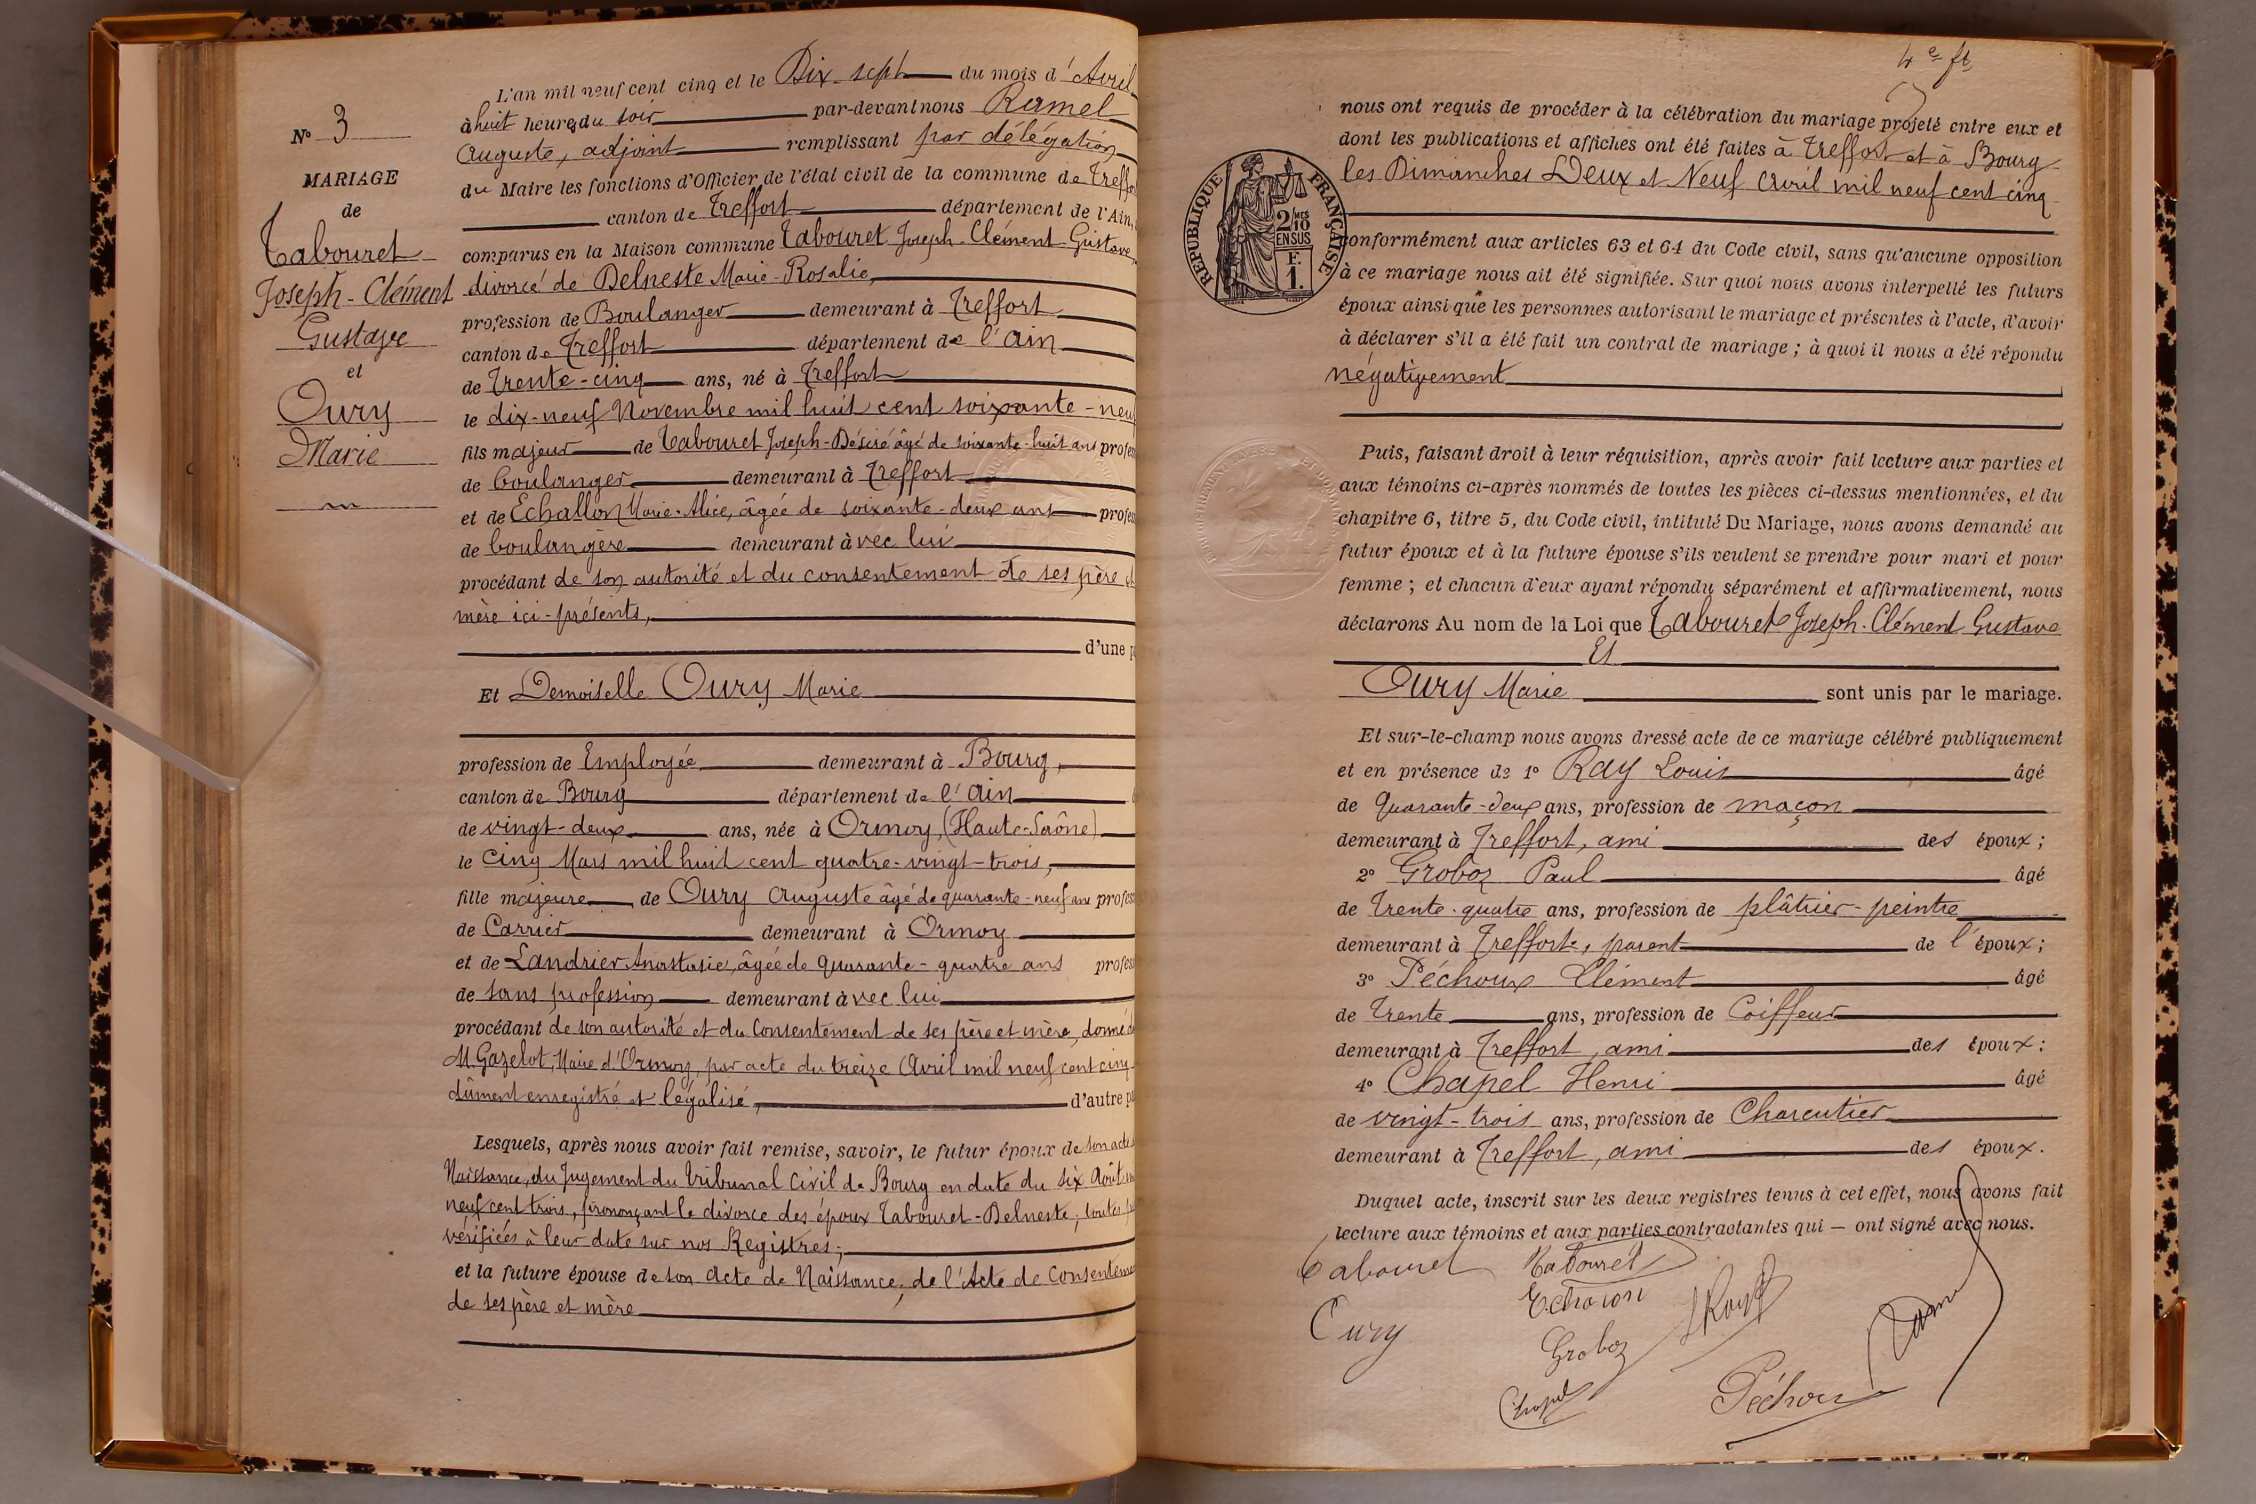 Nº 3
MARIAGE
de
Tabouret
Joseph-Clément
Gustave
et
Oury
Marie
L'an mil neuf cent cinq et le Dix-sept du mois d'Avril
à huit heures du soir par-devant nous Ramel
Auguste, adjoint remplissant par délégation
du Maire les fonctions d'Officier de l'état civil de la commune de Treffort
canton de Treffort département de l'Ain,
comparus en la Maison commune Tabouret Joseph-Clément-Gustave,
divorcé de Delneste Marie-Rosalie,
profession de Boulanger demeurant à Treffort
canton de Treffort département de l'Ain
de Trente-cinq ans, né à Treffort
le dix-neuf Novembre mil huit cent soixante-neuf
fils majeur de Tabouret Joseph-Désiré âgé de soixante-huit ans profes
de boulanger demeurant à Treffort
et de Echallon Marie-Alice, âgée de soixante-deux ans profes
de boulangère demeurant avec lui
procédant de son autorité et du consentement de ses père et
mère ici-présents,
d'une p
Et Demoiselle Oury Marie
profession de Employée demeurant à Bourg,
canton de Bourg département de l'Ain
de vingt-deux ans, née à Ormoy, (Haute-Saône)
le cinq Mars mil huit cent quatre-vingt-trois,
fille majeure de Oury Auguste âgé de quarante-neuf ans profes
de Carrier demeurant à Ormoy
et de Landrier Anastasie, âgée de quarante-quatre ans profes
de sans profession demeurant avec lui
procédant de son autorité et du Consentement de ses père et mère, donné
M. Gazelot, Maire d'Ormoy, par acte du treize Avril mil neuf cent cinq
dûment enregistré et légalisé, d'autre pa
Lesquels, après nous avoir fait remise, savoir, le futur époux de son acte
Naissance, du Jugement du Tribunal Civil de Bourg en date du six Août
neuf cent trois, prononçant le divorce des époux Tabouret-Delneste, toutes
vérifiées à leur date sur nos Registres;
et la future épouse de son Acte de Naissance; de l'Acte de Consenteme
de ses père et mère
4e ft
nous ont requis de procéder à la célébration du mariage projeté entre eux et
dont les publications et affiches ont été faites à Treffort et à Bourg
les Dimanches Deux et Neuf Avril mil neuf cent cinq
RÉPUBLIQUE FRANÇAISE
2/10 MES
EN SUS
F.
1.
conformément aux articles 63 et 64 du Code civil, sans qu'aucune opposition
à ce mariage nous ait été signifiée. Sur quoi nous avons interpellé les futurs
époux ainsi que les personnes autorisant le mariage et présentes à l'acte, d'avoir
à déclarer s'il a été fait un contrat de mariage; à quoi il nous a été répondu
négativement
Puis, faisant droit à leur réquisition, après avoir fait lecture aux parties et
aux témoins ci-après nommés de toutes les pièces ci-dessus mentionnées, et du
chapitre 6, titre 5, du Code civil, intitulé Du Mariage, nous avons demandé au
futur époux et à la future épouse s'ils veulent se prendre pour mari et pour
femme; et chacun d'eux ayant répondu séparément et affirmativement, nous
déclarons Au nom de la Loi que Tabouret Joseph-Clément Gustave
Et
Oury Marie sont unis par le mariage.
Et sur-le-champ nous avons dressé acte de ce mariage célébré publiquement
et en présence de 1º Ray Louis âgé
de Quarante-deux ans, profession de maçon
demeurant à Treffort, ami des époux;
2º Groboz Paul âgé
de Trente-quatre ans, profession de plâtrier-peintre
demeurant à Treffort, parent de l'époux;
3º Péchoux Clément âgé
de Trente ans, profession de Coiffeur
demeurant à Treffort, ami des époux;
4º Chapel Henri âgé
de vingt-trois ans, profession de Charcutier
demeurant à Treffort, ami des époux.
Duquel acte, inscrit sur les deux registres tenus à cet effet, nous avons fait
lecture aux témoins et aux parties contractantes qui — ont signé avec nous.
Tabouret Tabouret
Echalon
Oury LRay
Groboz Ramel
Chapel Péchoux